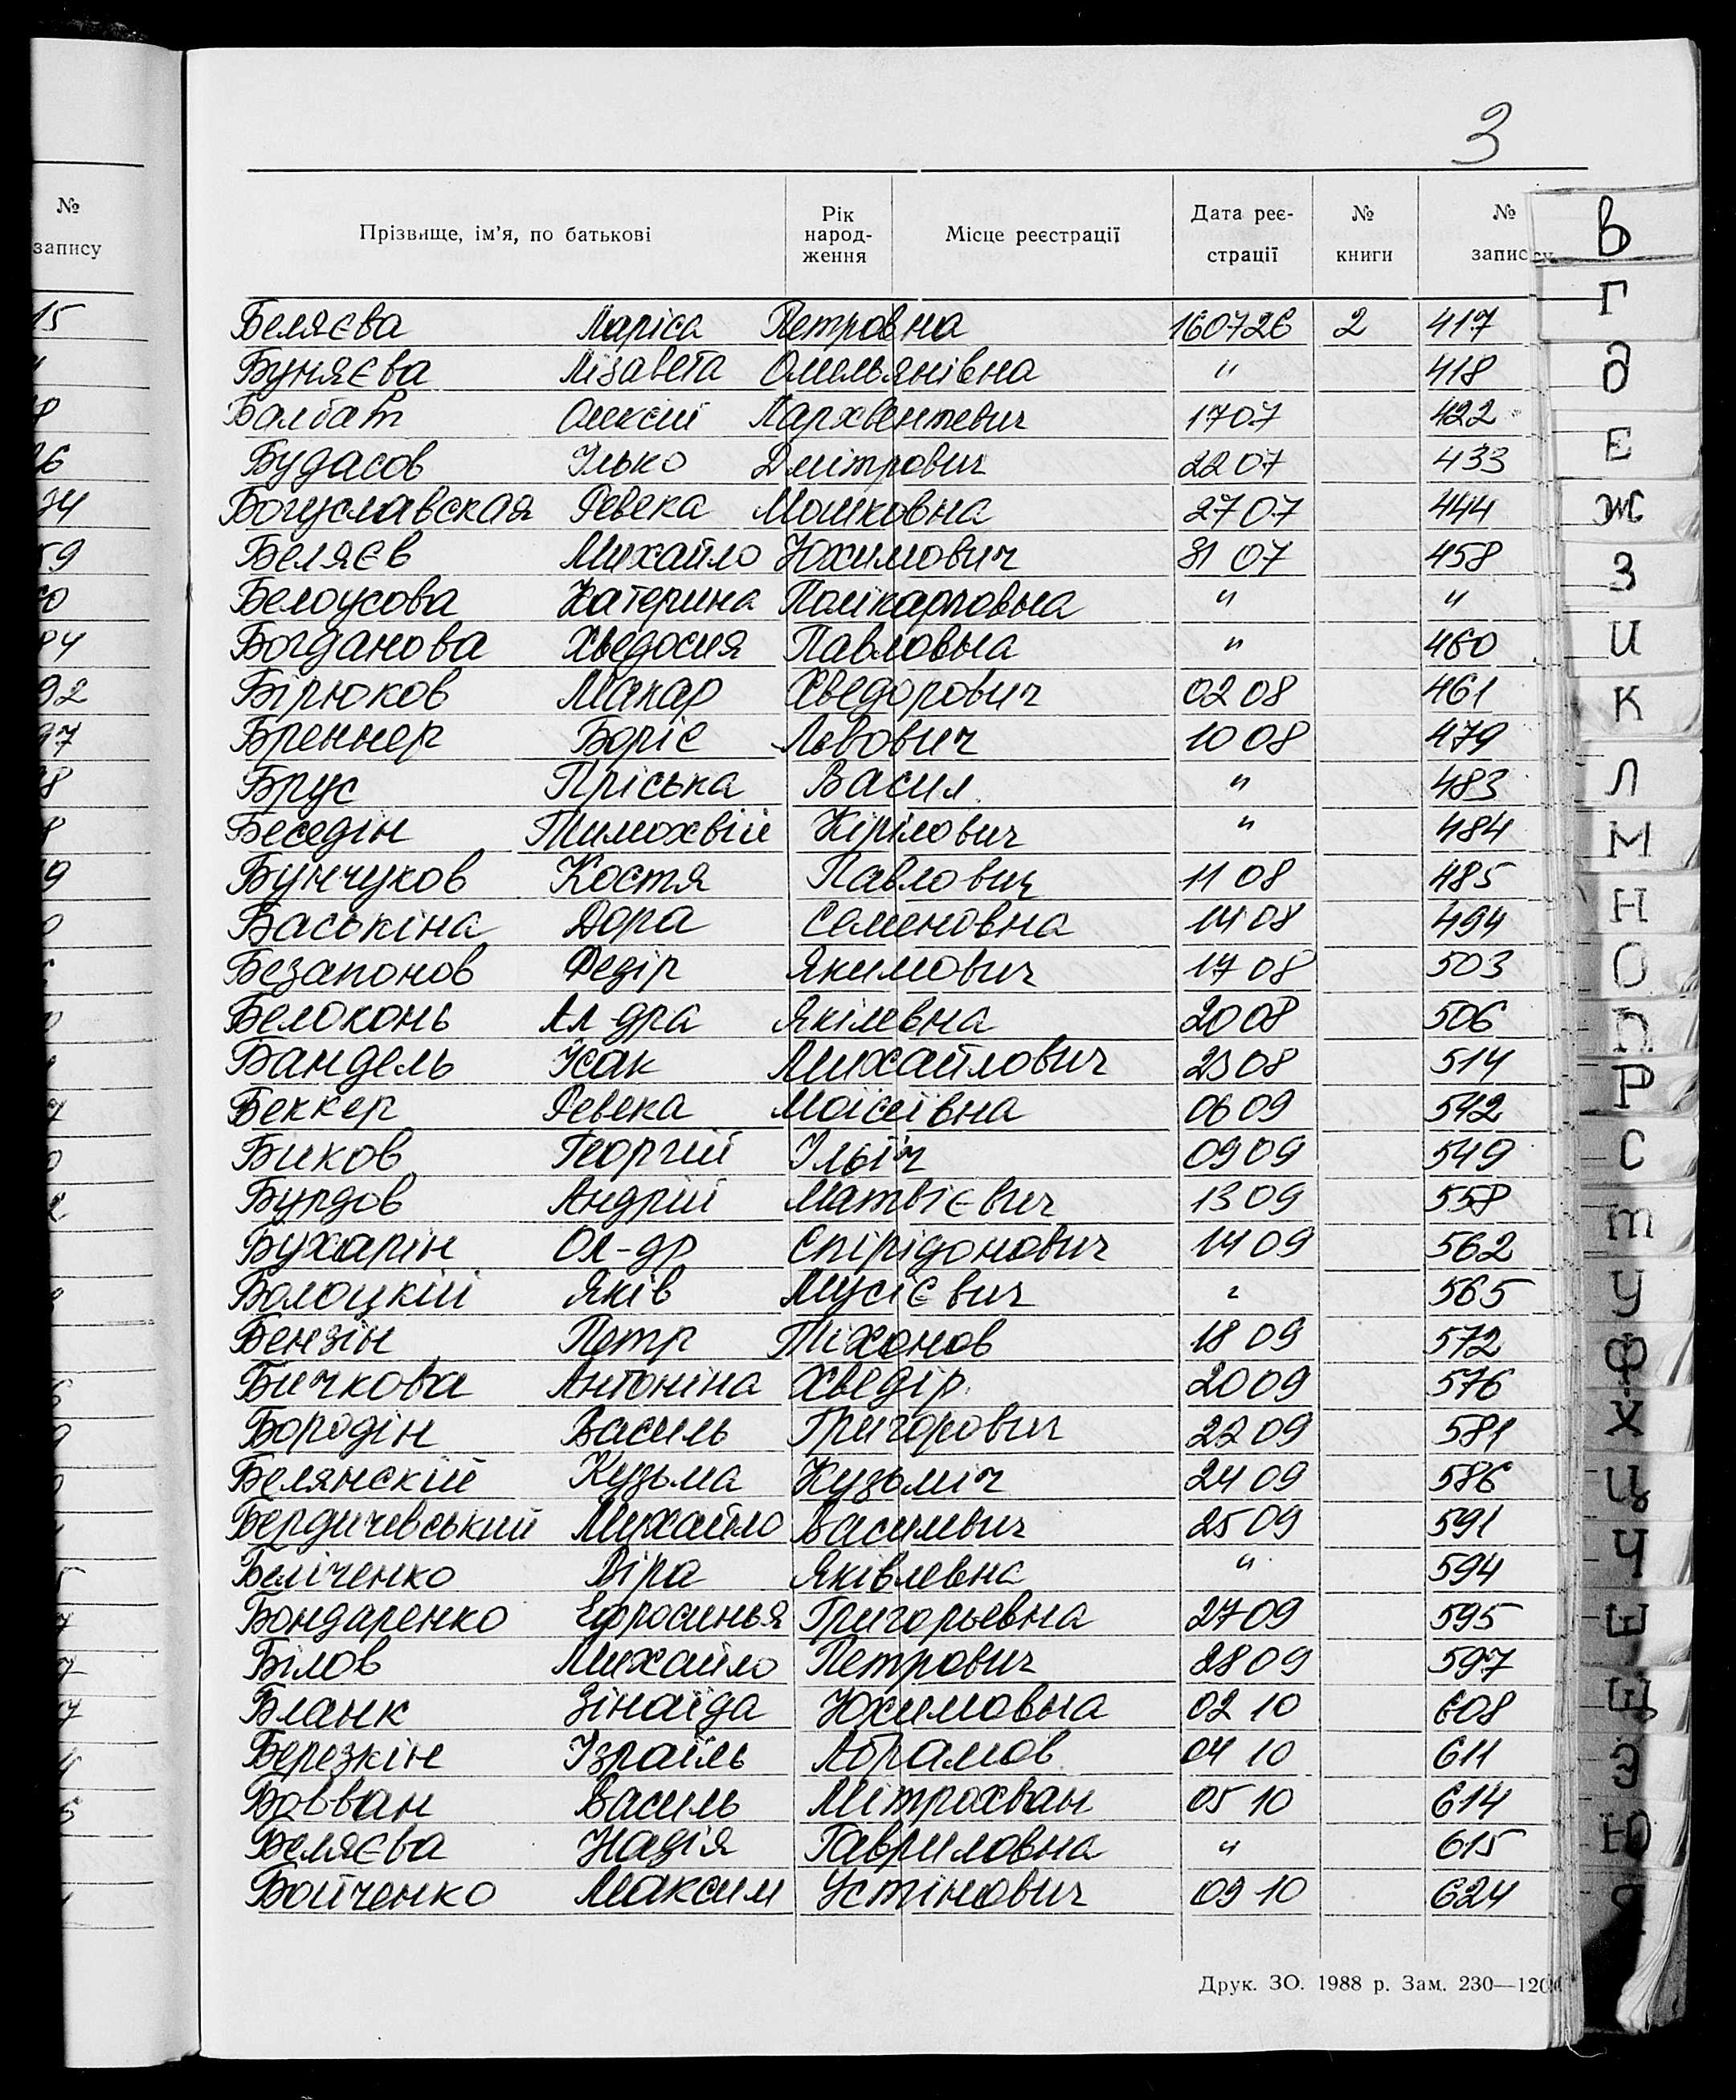 3
№ запису
Прізвище, ім'я, по батькові Рік народження Місце реєстрації Дата реєстрації № книги № запису
Беляєва Маріса Петровна 160726 2 417
Буняєва Лізавета Омельянівна " 418
Балбат Олексій Пархвентевич 1707 422
Будасов Ілько Дмітрович 2207 433
Богуславская Ревека Мошковна 2707 444
Беляєв Михайло Юхимович 31 07 458
Белоусова Катерина Полікарповна " "
Богданова Хведосия Павловна " 460
Бірюков Макар Хведорович 0208 461
Бреннер Боріс Львович 1008 479
Брус Пріська Васил " 483
Беседін Тимохвій Кірілович " 484
Бунчуков Костя Павлович 11 08 485
Баськіна Дора Семеновна 1408 494
Безапонов Федір Якимович 1708 503
Белоконь Ал-дра Якімевна 2008 506
Бандель Ісак Михайлович 2308 514
Беккер Ревека Моісеївна 0609 542
Биков Георгій Ільїч 0909 549
Бурдов Андрій Матвієвич 1309 558
Бухарін Ол-др Спірідонович 1409 562
Болоцкій Яків Мусієвич " 565
Бензін Петр Тіхонов 18 09 572
Бичкова Антоніна Хведір. 2009 576
Бородін Василь Григорович 2209 581
Белянскій Кузьма Кузьміч 2409 586
Бердичевський Михайло Васильевич 2509 591
Беліченко Віра Яківлевна " 594
Бондаренко Єфросинья Григорьевна 2709 595
Білов Михайло Петрович 2809 597
Бланк Зінаїда Юхимовна 02 10 608
Березкін Ізраїль Абрамов 04 10 611
Бовван Василь Мітрохван 05 10 614
Беляєва Надія Гавриловна " 615
Бойченко Максим Устінович 09 10 624
Друк. ЗО. 1988 р. Зам. 230—120
В
Г
Д
Е
Ж
З
И
К
Л
М
Н
О
П
Р
С
Т
У
Ф
Х
Ц
Ч
Ш
Щ
Э
Ю
Я